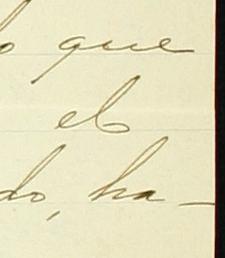 o que
el
do, ha-